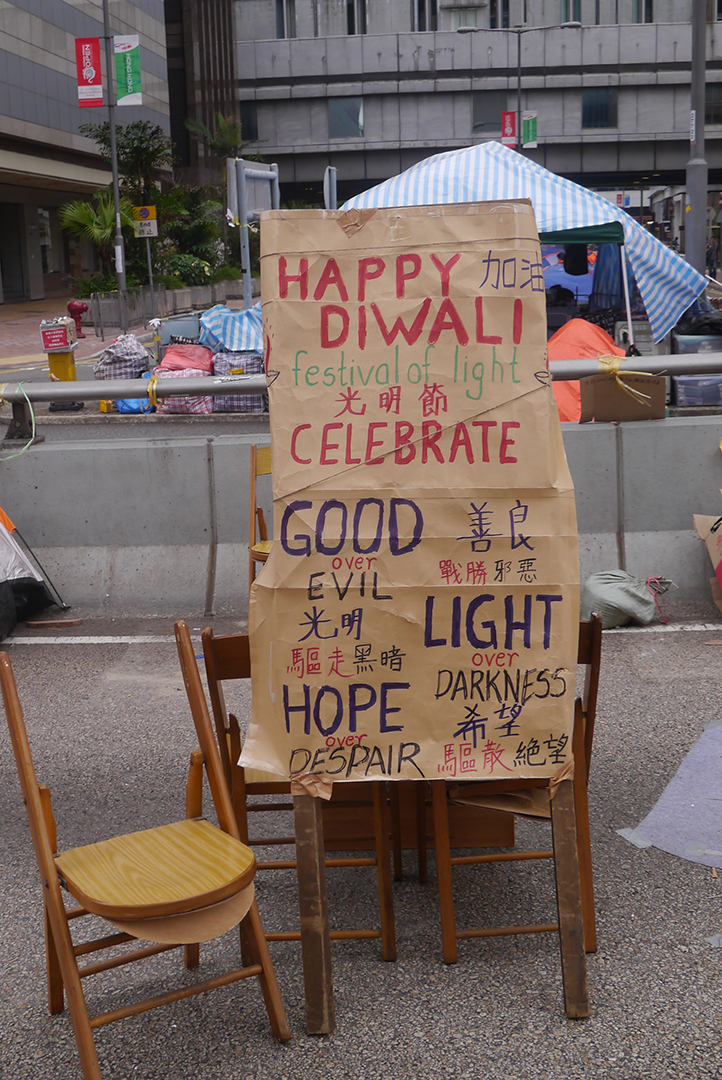 HAPPY 加油
DIWALI
festival of light
光明節
CELEBRATE
GOOD 善良
over 戰勝 邪惡
EVIL
光明 LIGHT
驅走黑暗 over
DARKNESS
HOPE 希望
over
DESPAIR 驅散 絕望
HONG KONG
End
終止